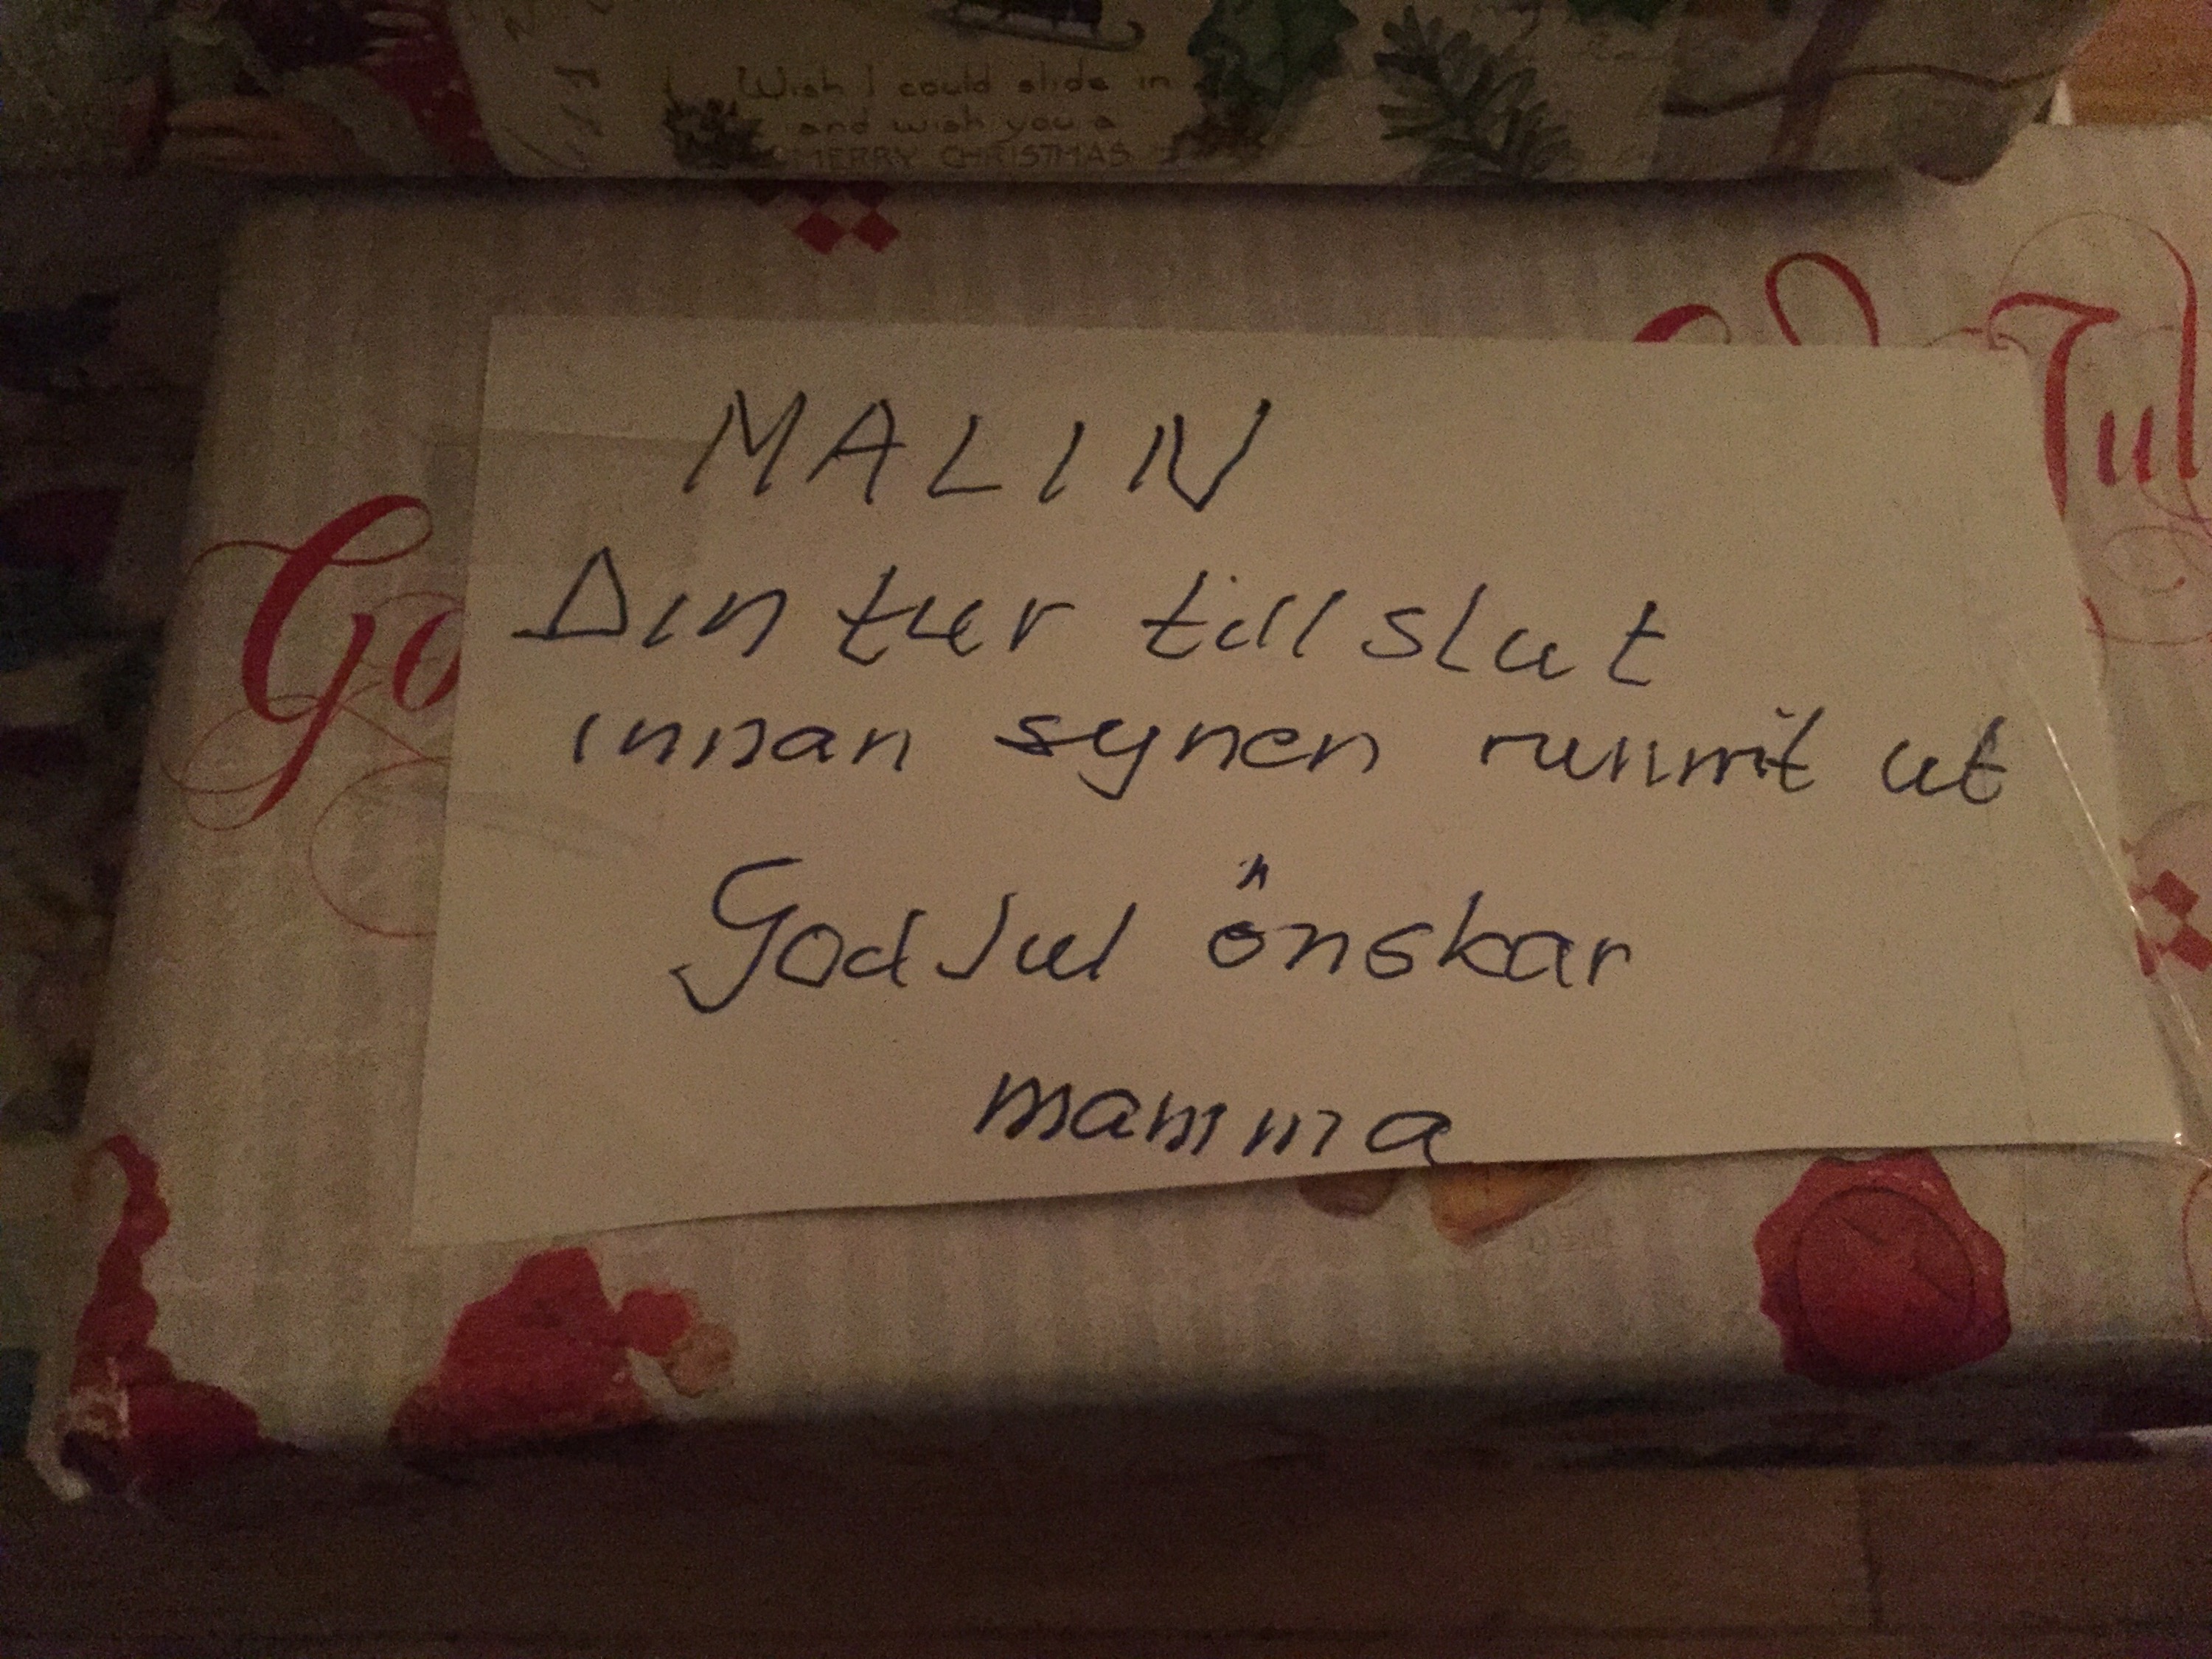 Wish I could slide in
and wish you a
MERRY CHRISTMAS
Go
Jul
MALIN
Din tur till slut
innan synen runnit ut
God Jul önskar
mamma